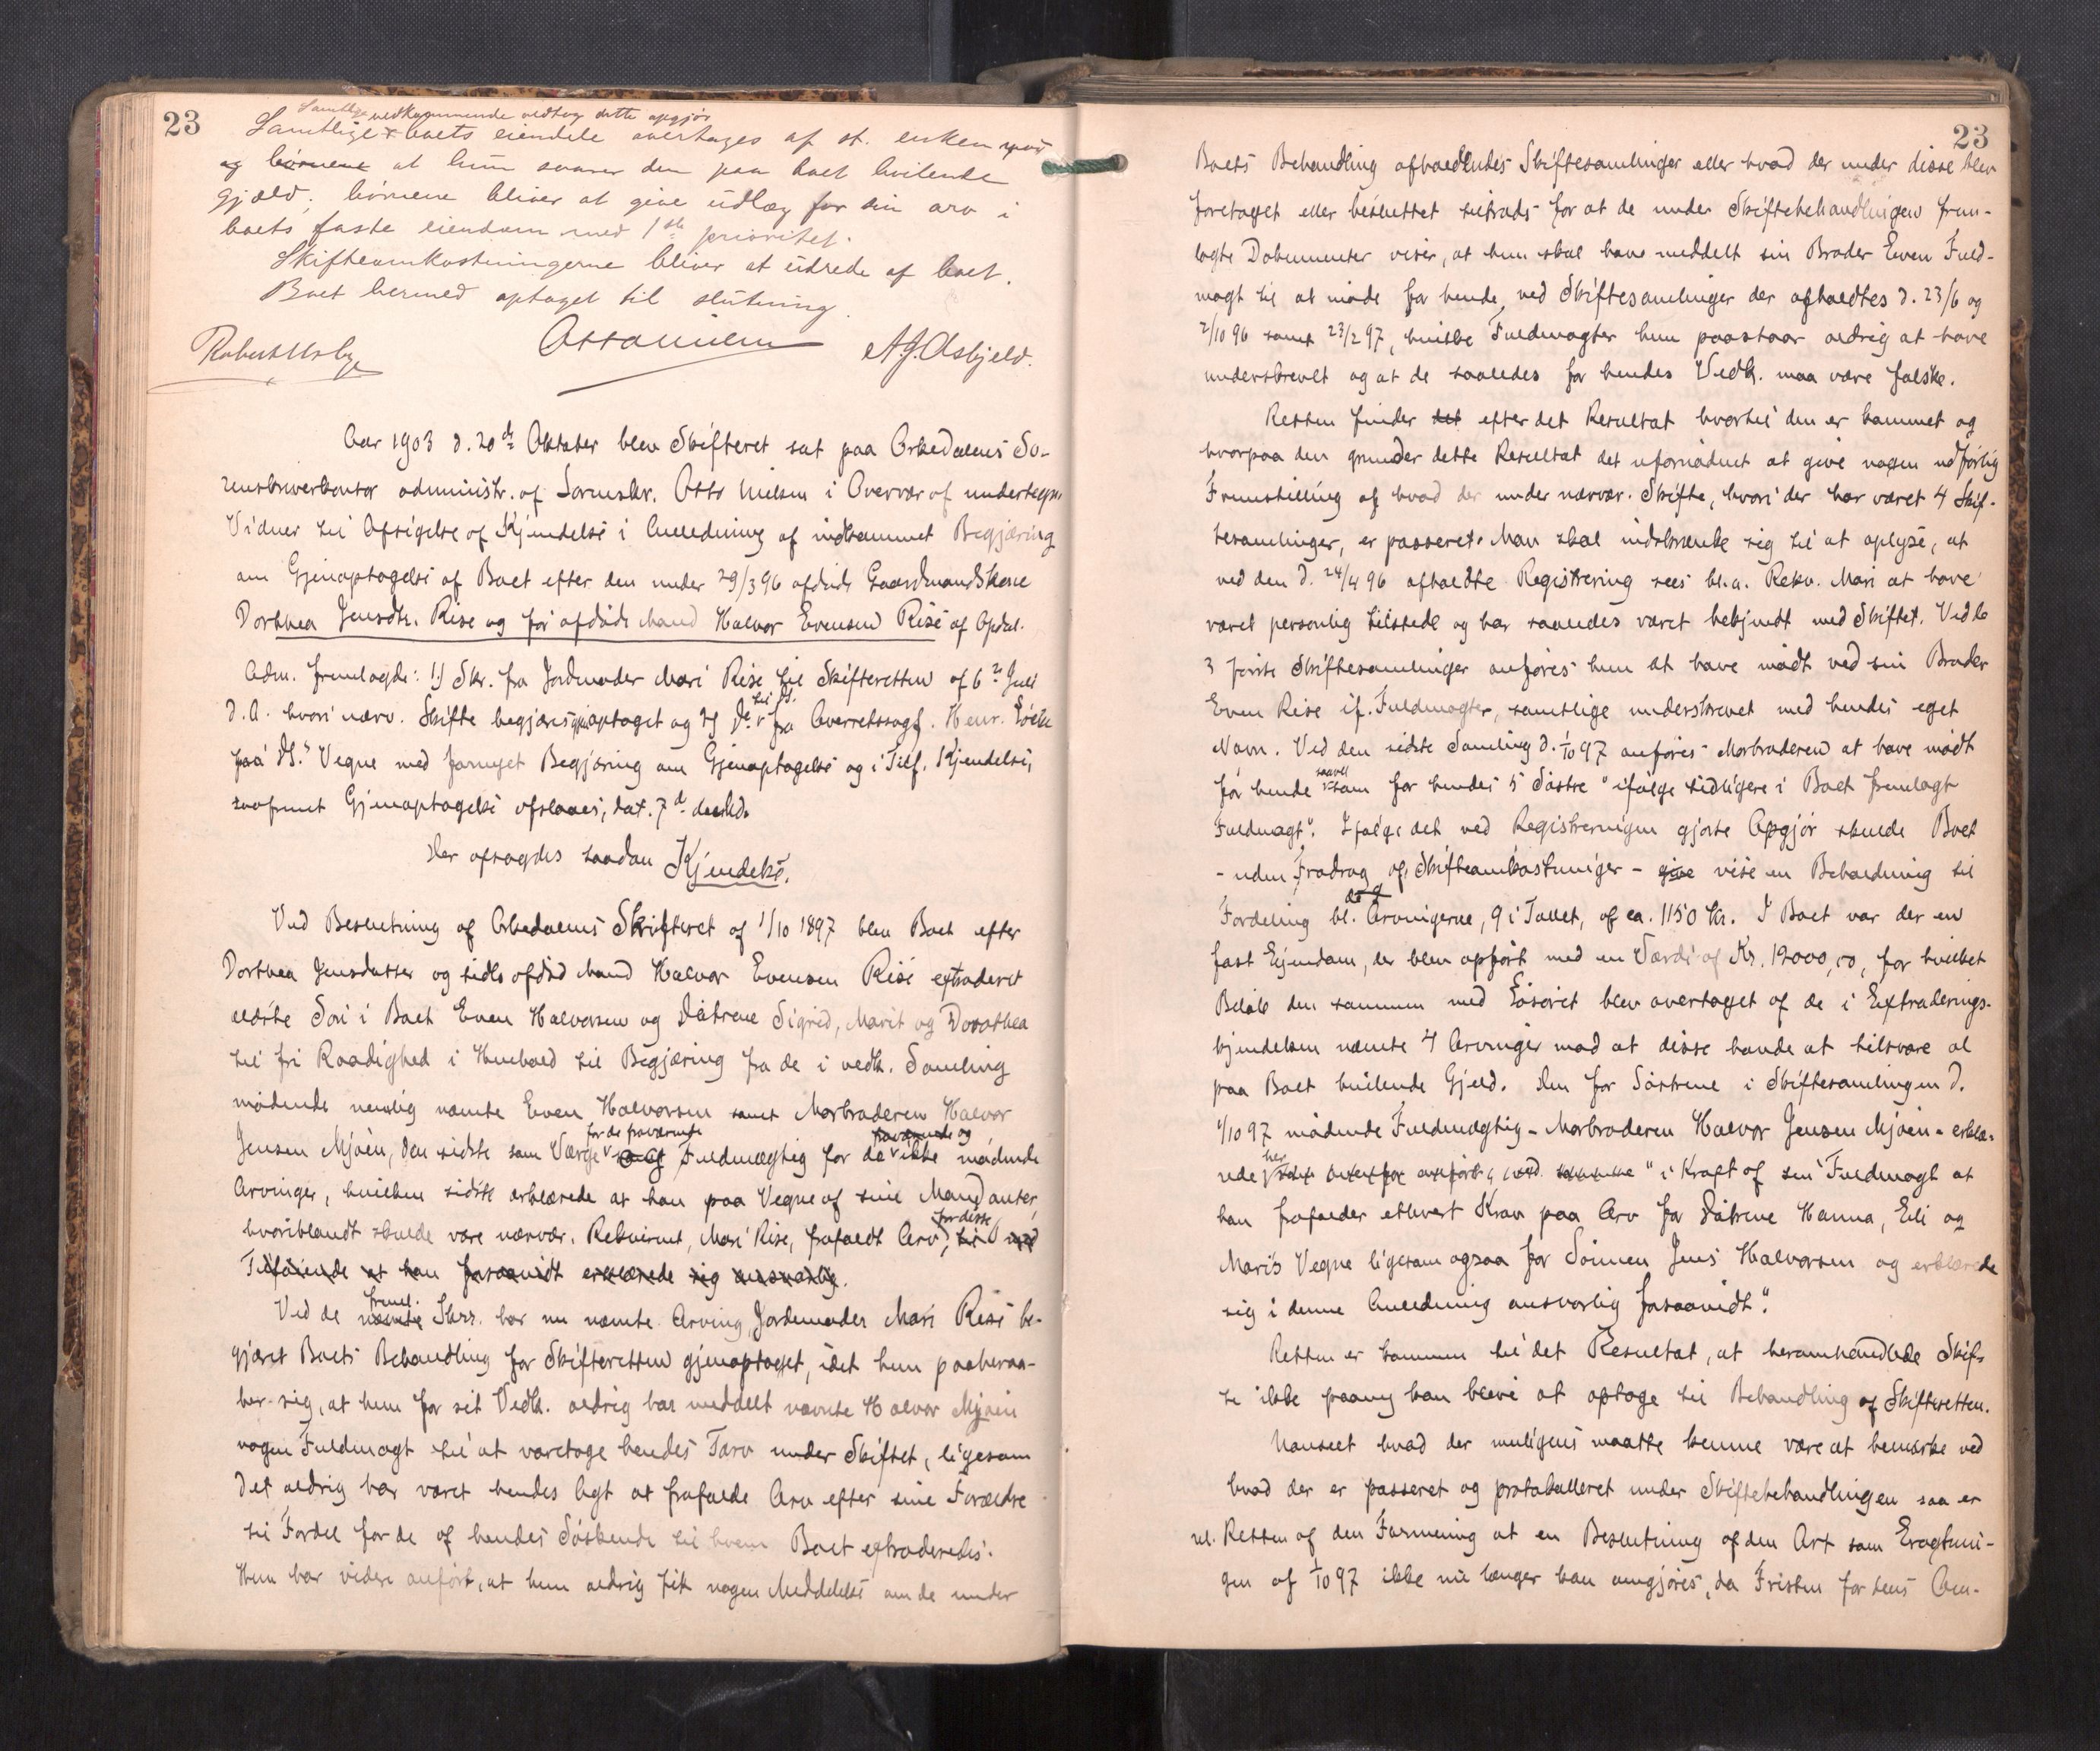 23
Samtlige vedkommende vedtog dette opgjør
Samtlige boets eiendele overtages af st. enken mod
og børnene at hun svarer den paa boet hvilende
gjæld; børnene bliver at give udlæg for sin arv i
boets faste eiendom med 1ste prioritet.
Skifteomkostningerne bliver at udrede af boet.
Boet hermed optaget til slutning.
Otto Nielsen
Aar 1903 d. 20de Oktober blev Skifteret sat paa Orkedalens So-
renskriverkontor administr. af Sorenskr. Otto Nielsen i Overvær af undertegn.
Vidner til Afsigelse af Kjendelse i Anledning af indkommet Begjæring
om Gjenoptagelse af Boet efter den under 29/3 96 afdøde Gaardmandskone
Dorthea Jensdtr. Rise og før afdøde Mand Halvor Evensen Rise af Opdal.
Adm. fremlagde: 1) Skr. fra Jordmoder Mari Rise til Skifteretten af 6te Juli
d. A. hvori nærv. Skifte begjæres gjenoptaget og 2) Do til do. fra Overretssagf. Henr. Løcke
paa ds. Vegne med fornyet Begjæring om Gjenoptagelse og i Tilf. Kjendelse,
saafremt Gjenoptagelse afslaaes, dat. 7de ds.
Der afsagdes saadan Kjendelse.
Ved Beslutning af Orkedalens Skifteret af 1/10 1897 blev Boet efter
Dorthea Jensdatter og tidl. afdød Mand Halvor Evensen Rise extraderet
ældste Søn i Boet Even Halvorsen og Døtrene Sigrid, Marit og Dorothea
til fri Raadighed i Henhold til Begjæring fra de i vedk. Samling
mødende nemlig nævnte Even Halvorsen samt Morbroderen Halvor
for de fraværende
fraværende og
Jensen Mjøen, den sidste som Værge samt Fuldmægtig for de ikke mødende
Arvinger, hvilken sidste erklærede at han paa Vegne af sine Mandanter,
for disse
hvoriblandt skulde være nærvær. Rekvirent, Mari Rise, frafaldt Arv, til med
Tilføiende at han forsaavidt erklærede sig ansvarlig.
freml.
Ved de nævnte Skrr. har nu nævnte Arving Jordemoder Mari Rise be-
gjæret Boets Behandling for Skifteretten gjenoptaget, idet hun paaberaa-
ber sig, at hun for sit Vedk. aldrig har meddelt nævnte Halvor Mjøen
nogen Fuldmagt til at varetage hendes Tarv under Skiftet, ligesom
det aldrig har været hendes Agt at frafalde Arv efter sine Forældre
til Fordel for de af hendes Søskende til hvem Boet extraderedes.
Hun har videre anført, at hun aldrig fik nogen Meddelelse om de under
23
Boets Behandling afholdtes Skiftesamlinger eller hvad der under disse blev
foretaget eller besluttet tiltrods for at de under Skiftebehandlingen frem-
lagte Dokumenter viser, at hun skal have meddelt sin Broder Even Fuld-
magt til at møde for hende ved Skiftesamlinger der afholdtes d. 23/6 og
2/10 96 samt 23/2 97, hvilke Fuldmagter hun paastaar aldrig at have
underskrevet og at de saaledes for hendes Vedk. maa være falske.
Retten finder det efter det Resultat hvortil den er kommet og
hvorpaa den grunder dette Resultat det ufornødent at give nogen udførlig
Fremstilling af hvad der under nærvær. Skifte, hvori der har været 4 Skif-
tesamlinger, er passeret. Man skal indskrænke sig til at oplyse, at
ved den d. 24/4 96 afholdte Registrering sees bl.a. Rekv. Mari at have
været personlig tilstede og har saaledes været bekjendt med Skiftet. Ved de
3 første Skiftesamlinger anføres hun at have mødt ved sin Broder
Even Rise if. Fuldmagter, samtlige underskrevet med hendes eget
Navn. Ved den sidste Samling d. 1/10 97 anføres Morbroderen at have mødt
saavel
for hende som for hendes 5 Søstre "ifølge tidligere i Boet fremlagt
Fuldmagt". Ifølge det ved Registreringen gjorte Opgjør skulde Boet
- uden Fradrag af Skifteomkostninger - give vise en Beholdning til
Fordeling bl. Arvingerne, 9 i Tallet, af ca. 1150 Kr. I Boet var der en
fast Ejendom, der blev opført med en Værdi af Kr. 12000,00, for hvilket
Beløb den sammen med Løsøret blev overtaget af de i Extraderings-
kjendelsen nævnte 4 Arvinger mod at disse havde at tilsvare al
paa Boet hvilende Gjeld. Den for Søstrene i Skiftesamlingen d.
1/10 97 mødende Fuldmægtig - Morbroderen Halvor Jensen Mjøen - erklæ-
her
rede "i Kraft af sin Fuldmagt at
han frafalder ethvert Krav paa Arv for Døtrene Hanna, Eli og
Mari's Vegne ligesom ogsaa for Sønnen Jens Halvorsen og erklærede
sig i denne Anledning ansvarlig forsaavidt".
Retten er kommen til det Resultat, at heromhandlede Skif-
te ikke paany kan blive at optage til Behandling af Skifteretten.
Uanseet hvad der muligens maatte kunne være at bemærke ved
hvad der er passeret og protokolleret under Skiftebehandlingen saa er
nl. Retten af den Formening at en Beslutning af den Art som Eragtnin-
gen af 1/10 97 ikke nu længer kan omgjøres, da Fristen for dens Om-